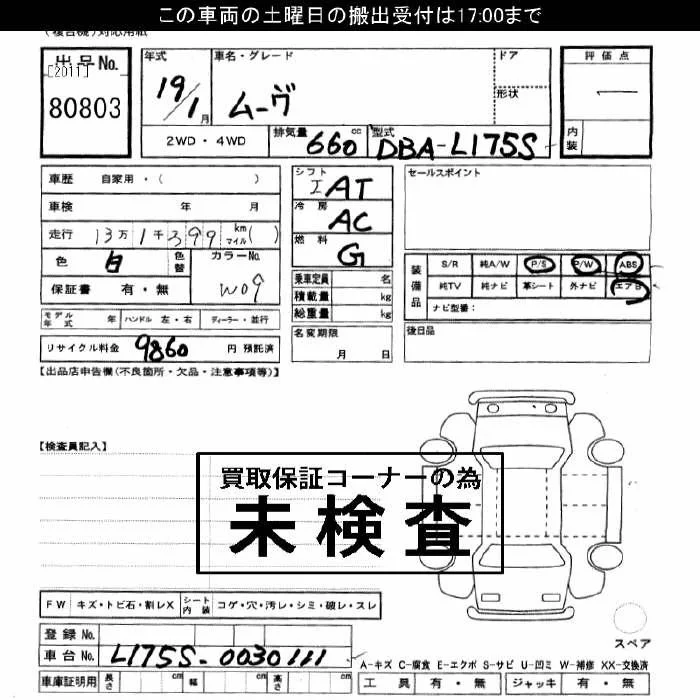 この車両の土曜日の搬出受付は17:00まで
(複合機)対応用紙
出品No. [2011] 80803
年式 19/1 月
車名・グレード ムーヴ
ドア
形状
評価点 ー
内装
2WD・4WD 排気量 660 cc 型式 DBA-L175S
車歴 自家用・( )
車検 年 月
走行 13万1千399 km マイル ( )
色 白 色替 カラーNo. W09
保証書 有・無
モデル年式 年 ハンドル 左・右 ディーラー・並行
リサイクル料金 9860 円 預託済
シフト IAT
冷房 AC
燃料 G
乗車定員 名
積載量 kg
総重量 kg
名変期限 月 日
セールスポイント
装備品 S/R 純A/W P/S P/W ABS
純TV 純ナビ 革シート 外ナビ エアB
ナビ型番:
後日品
【出品店申告欄(不良箇所・欠品・注意事項等)】
【検査員記入】
買取保証コーナーの為
未検査
FW キズ・トビ石・割レX シート内装 コゲ・穴・汚レ・シミ・破レ・スレ
登録No.
車台No. L175S-0030111
車庫証明用 長さ cm 幅 cm 高さ cm
スペア
A-キズ C-腐食 E-エクボ S-サビ U-凹ミ W-補修 XX-交換済
工具 有・無 ジャッキ 有・無